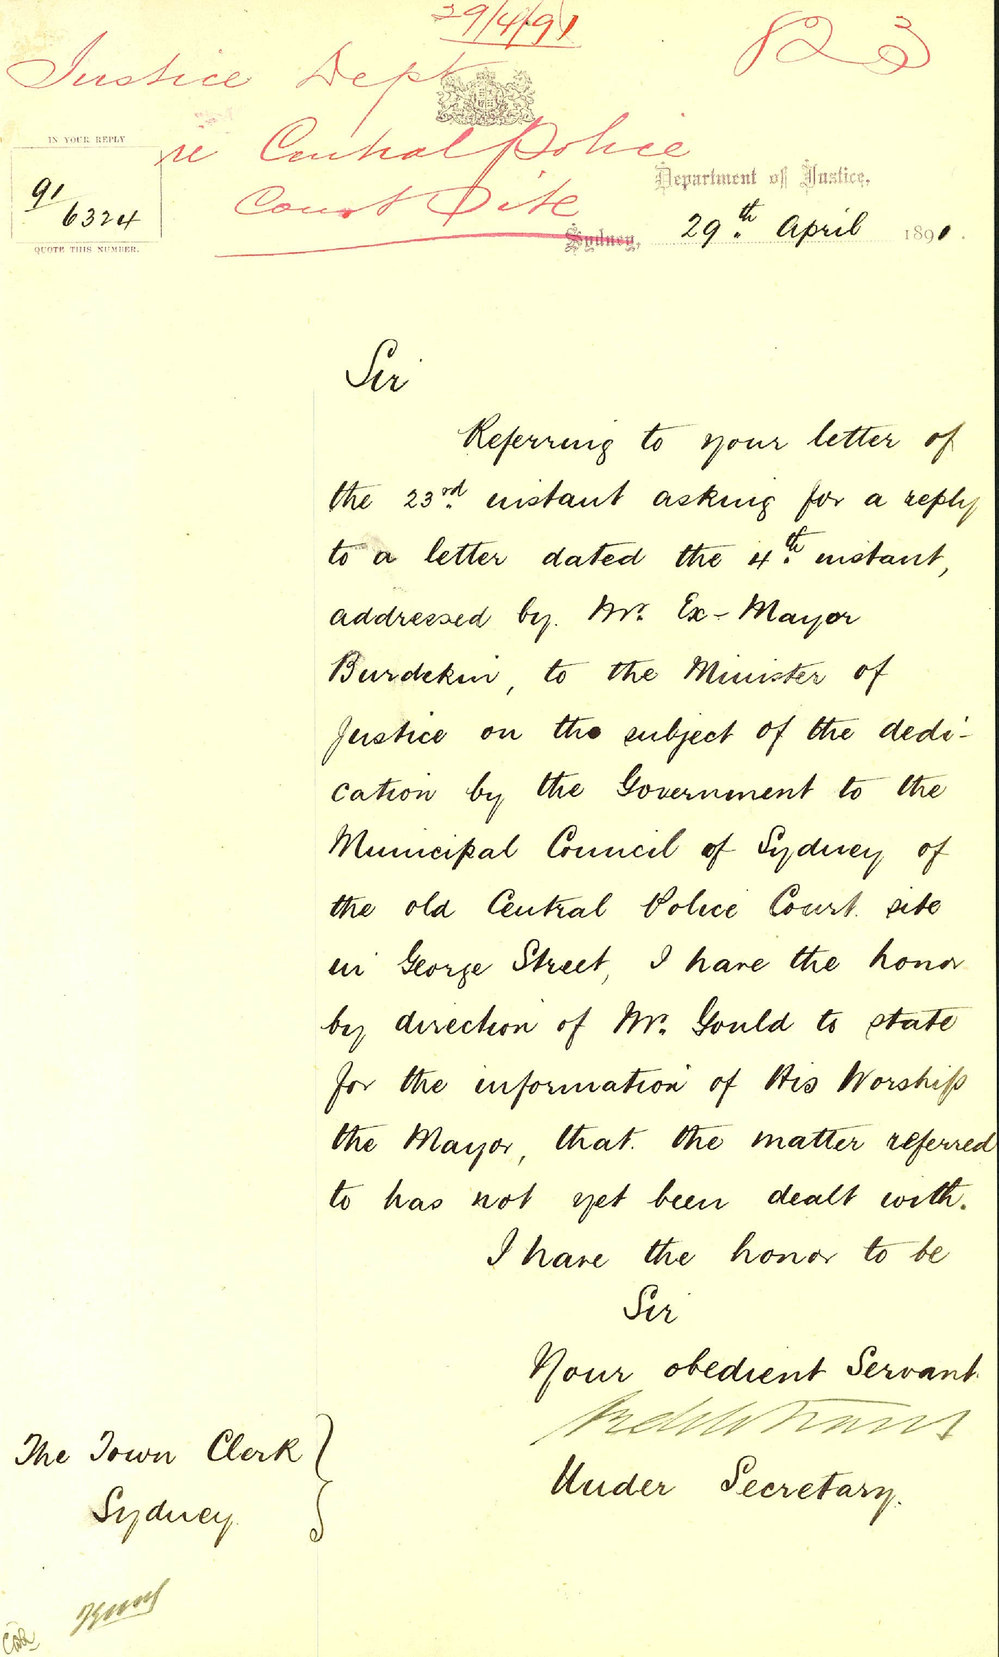 29/4/91
823
Justice Dept
re Central Police
Court Site
IN YOUR REPLY
91/6324
QUOTE THIS NUMBER.
Department of Justice,
Sydney, 29th. April 1891.
Sir
Referring to your letter of
the 23rd. instant asking for a reply
to a letter dated the 4th. instant,
addressed by Mr. Ex-Mayor
Burdekin, to the Minister of
Justice on the subject of the dedi-
cation by the Government to the
Municipal Council of Sydney of
the old Central Police Court site
in George Street, I have the honor
by direction of Mr. Gould to state
for the information of His Worship
the Mayor, that the matter referred
to has not yet been dealt with.
I have the honor to be
Sir
Your obedient Servant
Under Secretary.
The Town Clerk
Sydney